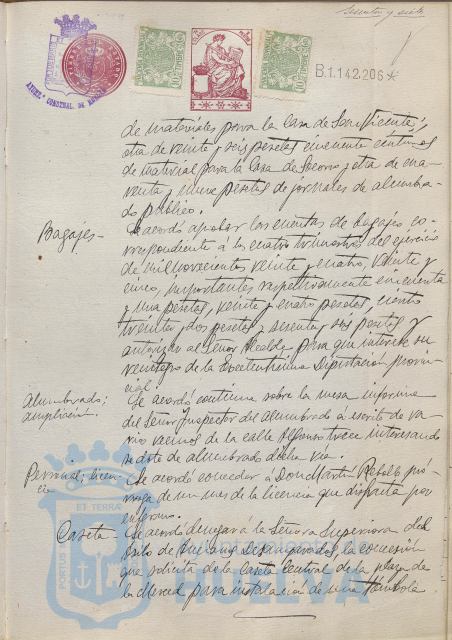 Sesenta y siete
B.1.142.206*
de materiales para la Casa de San Vicente;
otra de veinte y seis pesetas cincuenta centimos
de material para la Casa de Socorro y otra de no-
venta y nueve pesetas de jornales de alumbra-
do público.
Bagajes-
Se acordó aprobar las cuentas de bagajes co-
rrespondiente á los cuatro trimestres del ejercicio
de mil novecientos veinte y cuatro, veinte y
cinco, importantes respectivamente cincuenta
y una pesetas, veinte y cuatro pesetas, ciento
treinta y dos pesetas y sesenta y seis pesetas y
autorizar al Señor Alcalde para que interese su
reintegro de la Excelentísima Diputación provin-
cial.
Alumbrado;
ampliación.
Se acordó continue sobre la mesa informe
del Señor Inspector del alumbrado á escrito de va-
rios vecinos de la calle Alfonso trece interesando
se dote de alumbrado dicha via.
Personal; licen-
cia
Se acordó conceder á Don Martín Rebollo pro-
rroga de un mes de la licencia que disfruta por
enfermo.
Caseta
Se acordó denegar á la Señora Superiora del
Asilo de Ancianos Desamparados la concesión
que solicita de la Caseta Central de la plaza de
la Merced para instalación de una Tómbola.
PORTUS
ET TERRAE
HUELVA